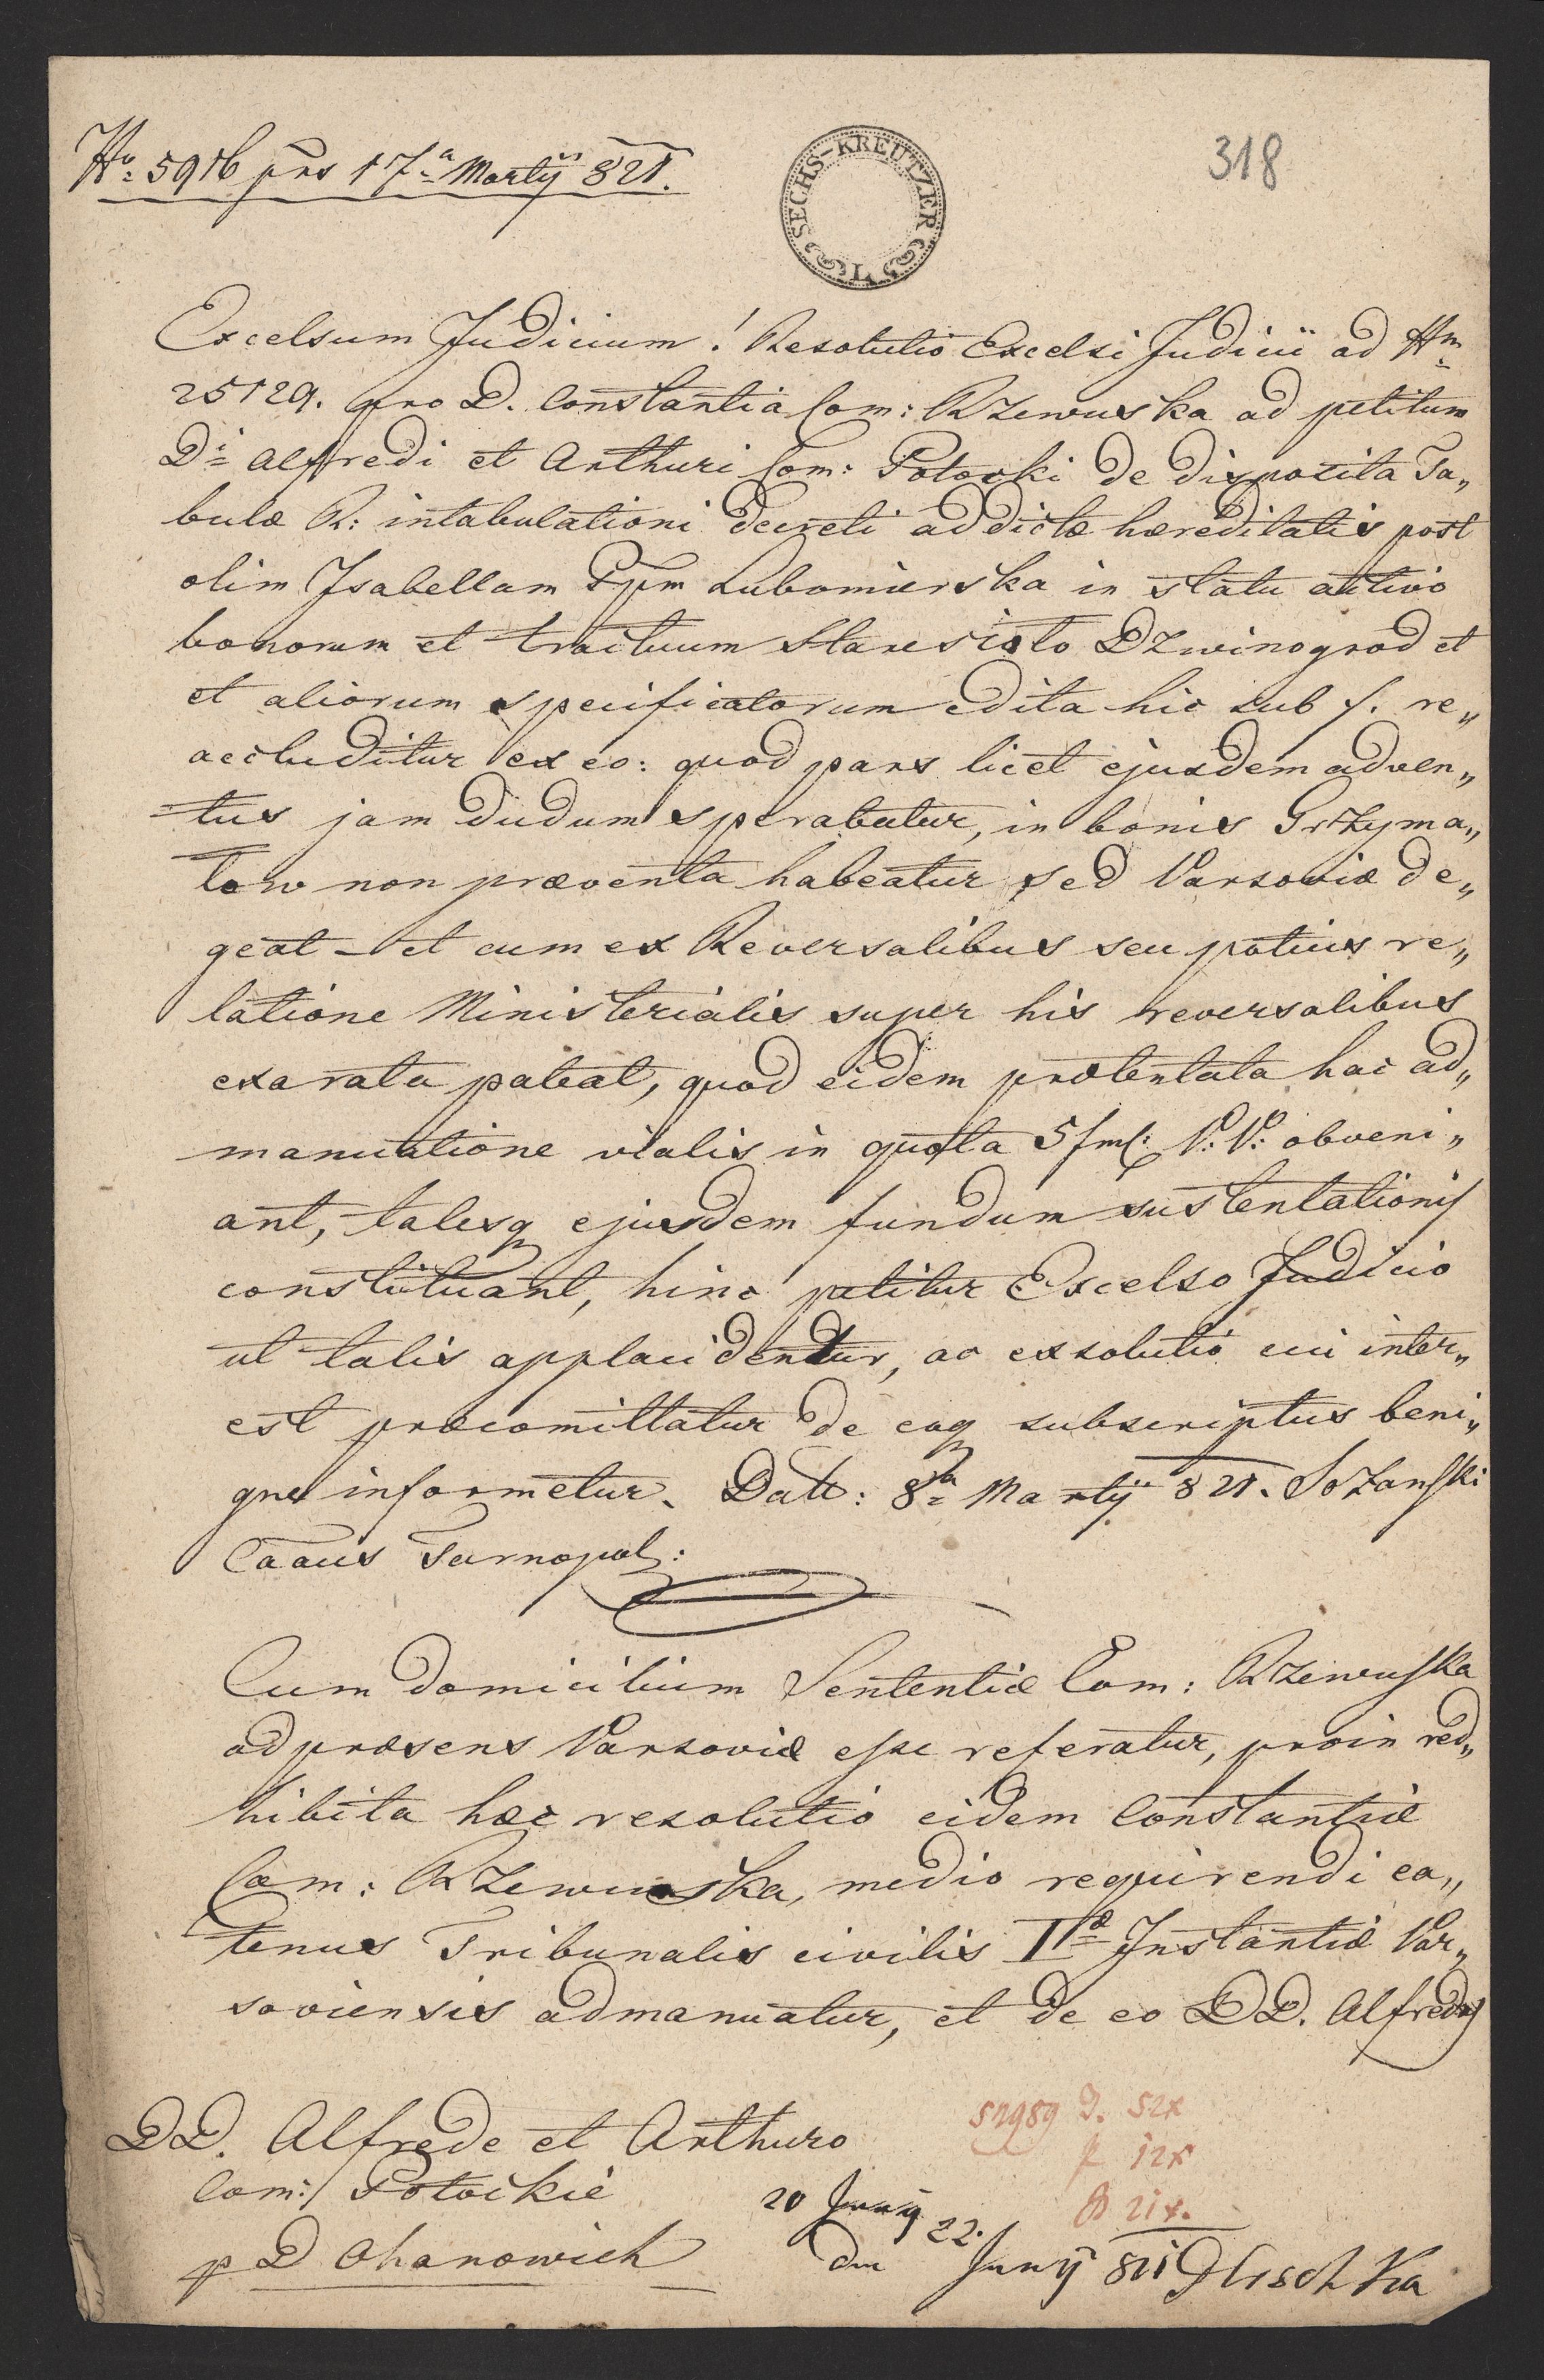 No: 5916 prs 17a Martij 821.
SECHS-KREUTZER
VI
318
Excelsum Judicium! Resolutio Excelsi Judicii ad Nm
25129. pro D. Constantia Com: Rzewuska ad petitum
Di Alfredi et Arthuri Com: Potocki de disposita Ta„
bulæ R: intabulationi decreti addictæ hæreditatis post
olim Isabellam Ppm Lubomierska in statu activo
bonorum et tractuum Staresioto Dzwinogrod et
et aliorum specificatorum edita hic sub ƒ. re„
accluditur ex eo: quod pars licet ejusdem adven„
tus jam dudum sperabatur, in bonis Grzyma„
low non præventa habeatur sed Varsoviæ de„
geat – et cum ex Reversalibus seu potius re„
latione Ministerialis super his reversalibus
exarata pateat, quod eidem prætentata hac ad„
manuatione vialis in quota 5 fmƒ: V: V: obveni„
ant, talesq ejusdem fundum sustentationis
constituant, hinc petitur Excelso Judicio
ut talis applacidentur, ac exsolutio cui inter„
est præcomittatur de eoq subscriptus beni„
gne informetur. Datt: 8a Martij 821. Sozanski
Caaus Tarnopol:
Cum domicilium Sententiæ Com: Rzewuska
ad præsens Varsoviæ esse referatur, proin red„
hibita hæc resolutio eidem Constantiæ
Com: Rzewuska, medio requirendi ea„
tenus Tribunalis civilis Iæ Instantiæ Var„
soviensis admanuatur, et de eo DD. Alfredus
DD. Alfrede et Arthuro
Com: Potockie
p D Ohanowich
52989 J. 52x
12x
21x.
20 Juny
22.
du Juny 821 Hischka